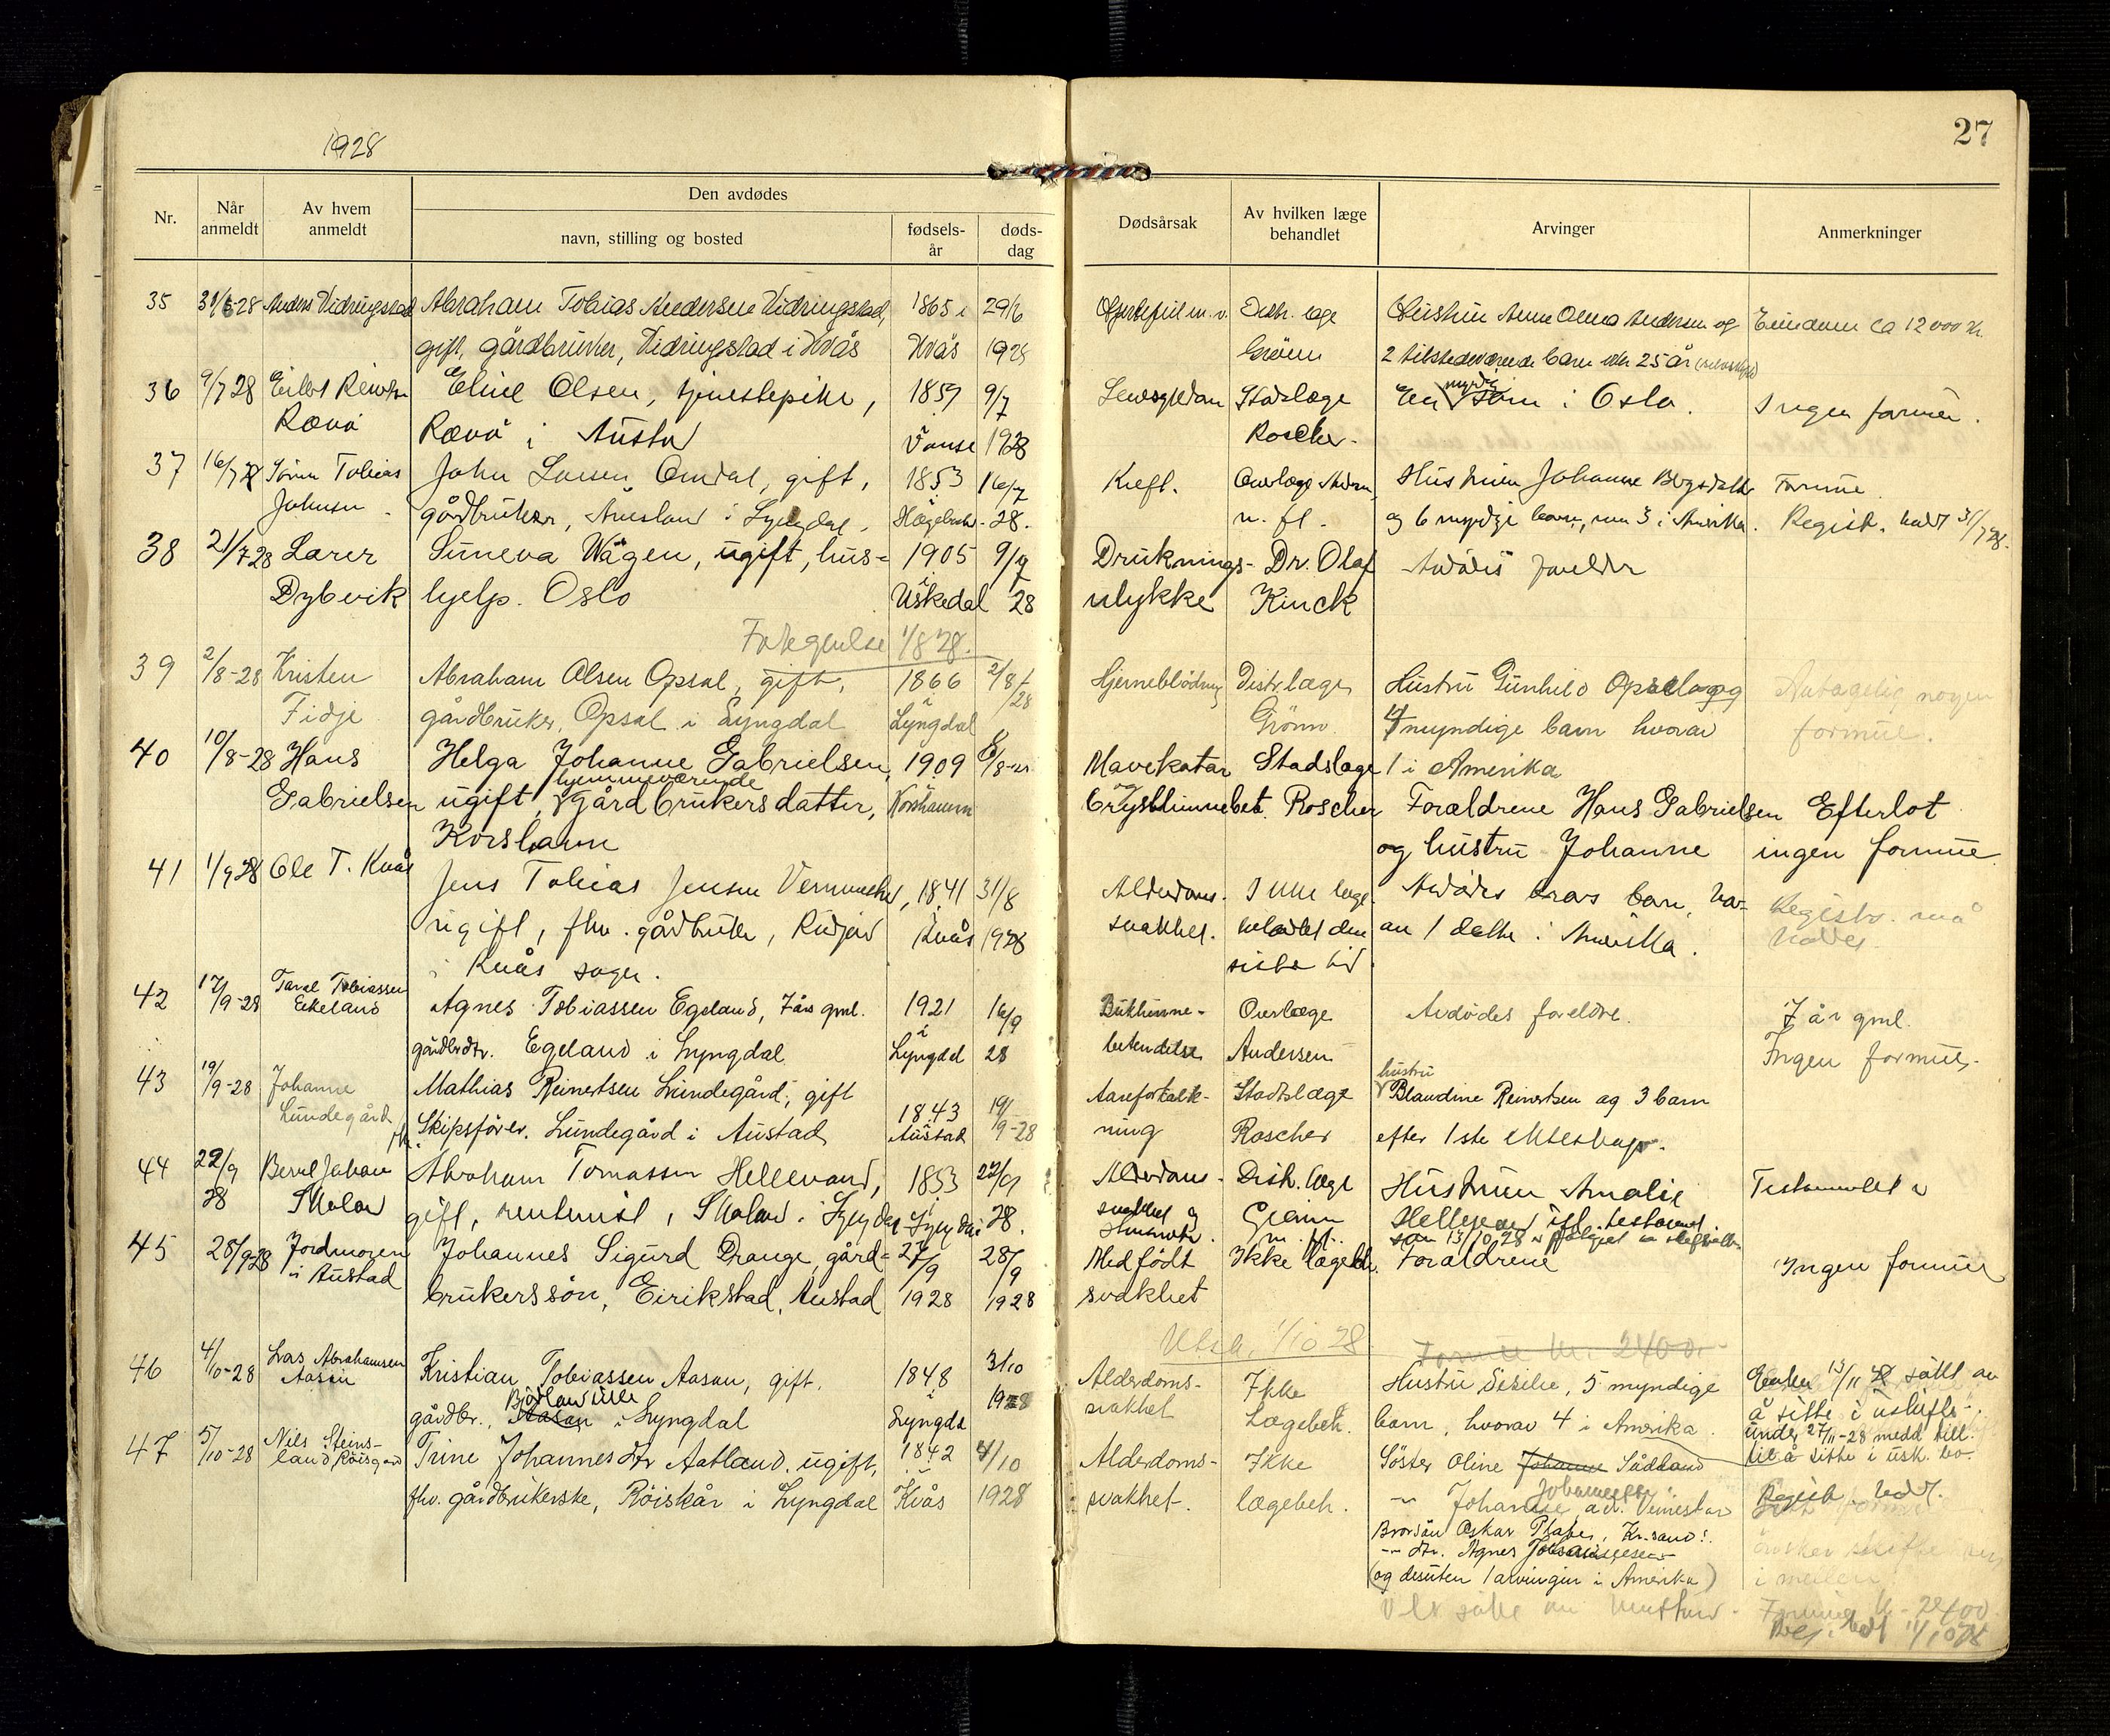 1928
27
Nr.
Når anmeldt
Av hvem anmeldt
Den avdødes
navn, stilling og bosted
fødsels-år
døds-dag
Dødsårsak
Av hvilken læge behandlet
Arvinger
Anmerkninger
35 -28 Anders Vidringstad Abraham Tobias Andersen Vidringstad, 1865 i 29/6 Distr. læge Hustru Anne Andersen og Eiendom ca 12000 kr.
gift, gårdbruker, Vidringstad i Kvås Kvås 1928 Grönn 2 tilstedeværende barn over 25 år
36 9/7 28 Eilert Eline Olsen, tjenestepike, 1857 9/7 Stadslæge En myndig sønn i Oslo. Ingen formue.
Rævö Rævö i Austad Vanse 1928 Roscher.
37 16/7 28 Tobias John Larsen Omdal, gift, 1853 16/7 Kreft. Overlæge Hustruen Johanne og Formue.
Johnsen gårdbruker, i Lyngdal. Hægebost. 28. m. fl. og 6 myndige barn, 3 i Amerika. Registr. holdt 31/7 28.
38 21/7 28 Lars Suneva Vågen, ugift, hus- 1905 9/7 Druknings- Dr. Olaf Avdödes foreldre
Dybvik hjelp. Oslo i Uskedal 28 ulykke Kinck
Foregvelse 1/8 28.
39 2/8-28 Kristen Abraham Olsen Opsal, gift, 1866 2/8 Hjerneblödning Distr.læge Hustru Gunhild Opsal og Antagelig nogen
Fidje gårdbruker, Opsal i Lyngdal i Lyngdal /28 Grönn. 4 myndige barn hvorav formue.
40 10/8-28 Hans Helga Johanne Gabrielsen, 1909 8/8-28 Mavekatar Stadslæge 1 i Amerika
Gabrielsen ugift, hjemmeværende gårdbrukersdatter, i Korshavn og brysthinnebet. Roscher Forældrene Hans Gabrielsen Efterlot
Korshavn og hustru Johanne ingen formue
41 1/9 28 Ole T. Kvås Jens Tobias Jensen 1841 31/8 Alderdoms- Ikke læge- Avdödes barn, hvor- Registr. må
ugift, fhv. gårdbruker, i Kvås 1928 svakhet. behandlet den av 1 datter i Amerika. holdes.
i Kvås sogn. siste tid.
42 17/9-28 Taral Tobiassen Agnes Tobiassen Egeland, 7 års gml. 1921 16/9 Bukhinne- Overlæge Avdödes foreldre. 7 år gml.
Eikeland gårdbrdtr. Egeland i Lyngdal i Lyngdal 28 betendelse Andersen Ingen formue.
43 19/9-28 Johanne Mathias Reinertsen Lundegård, gift 1843 19/9-28 Aareforkalk- Stadslæge hustru Blandine Reinertsen og 3 barn
Lundegård fhv. Skipsförer. Lundegård i Austad i Austad ning Roscher efter 1ste ekteskap.
44 22/9 28 Bernt Johan Abraham Tomassen Hellevand, 1853 22/9 Alderdoms- Distr. læge Hustruen Amalie Testamentet
Skoland gift, rentenist, Skoland i Lyngdal i Lyngdal 28. svakhet og Grönn m. fl. testament
13/10 28
45 28/9 28 Jordmoren Johannes Sigurd Drange, gård- 27/9 28/9 Medfödt Ikke lægebh. Forældrene Ingen formue
i Austad brukerssön, Eirikstad, Austad 1928 1928 svakhet
1/10 28 Formue kr. 2400.-
46 4/10-28 Lars Abrahamsen Kristian Tobiassen Aasen, gift, 1848 3/10 Alderdoms- Ikke Hustru Sesilie, 5 myndige Enken 13/11 28 sökt om
Aasen gårdbr., Aasen i Lyngdal i Lyngdal 1928 svakhet Lægebeh. barn, hvorav 4 i Amerika. å sitte i uskifte.
under 27/11-28 medd. till.
til å sitte i usk. bo.
47 5/10-28 Nils Steins- Trine Johannesdtr Aatland, ugift, 1842 4/10 Alderdoms- Ikke Söster Oline Johanne Sådland
land, Röisgård fhv. gårdbrukerske, Röiskår i Lyngdal i Kvås 1928 svakhet. lægebeh. Registr. holdt.
Brorsön Oskar Kr.sand S.
-"- dtr. Agnes
(og desuten 1 arving i Amerika)
Formue kr.
Reg. holdt 11/10 28